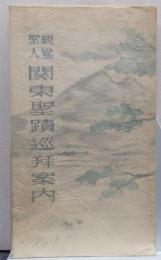 親鸞
聖人
関東聖蹟巡拜案内